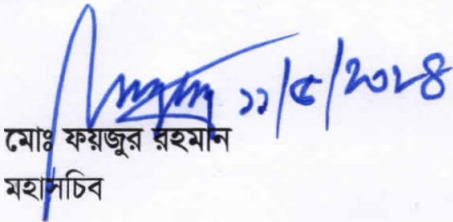 ১১/৫/২০২৪
মোঃ ফয়জুর রহমান
মহাসচিব